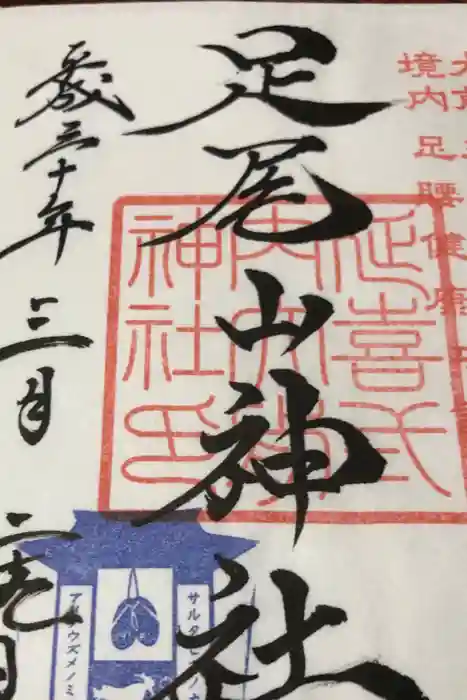 境内 足腰健康
足尾山神社
延喜式
内大前
神社印
平成三十年
三月
サルタヒ
アメノウズメノミ